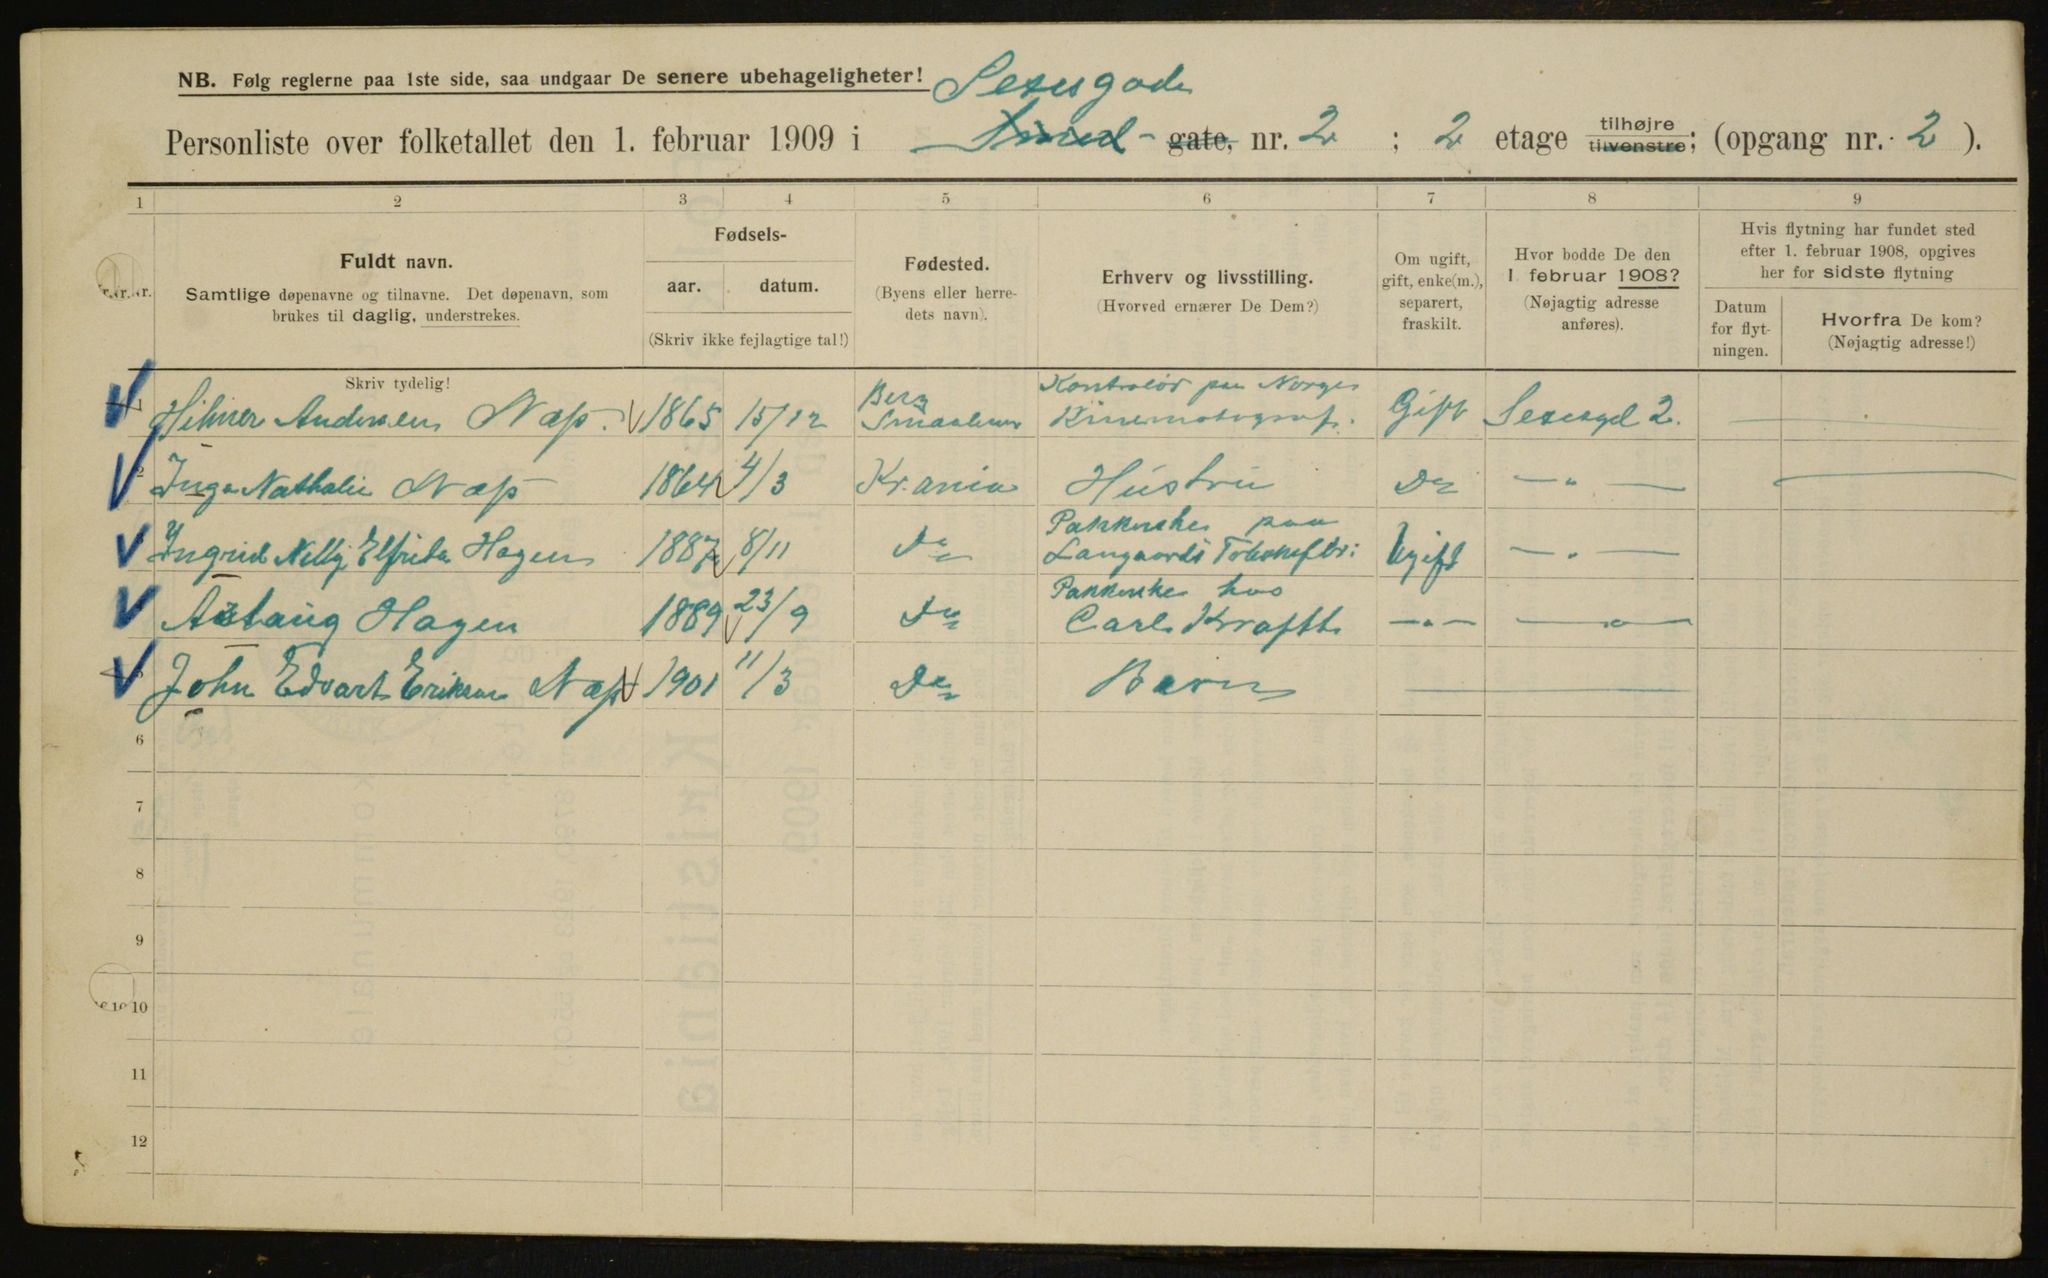 NB. Følg reglerne paa 1ste side, saa undgaar De senere ubehageligheter!
Sexesgade
Personliste over folketallet den 1. februar 1909 i Smed- gate, nr. 2 ; 2 etage tilhøjre tilvenstre; (opgang nr. 2 ).
1 2 3 4 5 6 7 8 9
Fuldt navn.
Samtlige døpenavne og tilnavne. Det døpenavn, som
brukes til daglig, understrekes.
Skriv tydelig!
Fødsels-
aar. datum.
(Skriv ikke fejlagtige tal!)
Fødested.
(Byens eller herre-
dets navn).
Erhverv og livsstilling.
(Hvorved ernærer De Dem?)
Om ugift,
gift, enke(m.),
separert,
fraskilt.
Hvor bodde De den
1. februar 1908?
(Nøjagtig adresse
anføres).
Hvis flytning har fundet sted
efter 1. februar 1908, opgives
her for sidste flytning
Datum
for flyt-
ningen.
Hvorfra De kom?
(Nøjagtig adresse!)
Berg Kontrolør paa Norges
Hilmer Andersen Næss. 1865 15/12 Smaalenene Kinematograf. Gift Sexesgd 2.
2 Inga Nathalie Næss 1864 4/3 Kr.ania Hustru Do — " —
Pakkerske paa
Ingrid Nelly Elfrida Hagen 1887 8/11 Do Langaards Tobaksfbr: Ugift — " —
Pakkerske hos
Aslaug Hagen 1889 23/9 Do Carl Krafft — " — — " —
John Edvart Eriksen Næss 1901 11/3 Do Barn
6
7
8
9
10
11
12